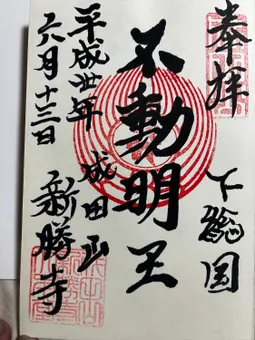 奉拝
下総国
不動明王
成田山
新勝寺
平成卅年
六月十三日